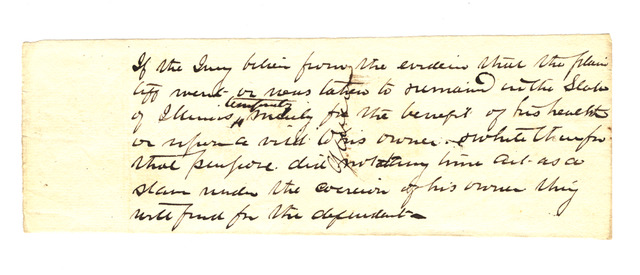 If the Jury believe from the evidence that the plain
tiff went or was taken to remain in the State
temporarily
of Illinois merely for the benefit of his health
or upon a visit to his owner & while there for
that purpose did not any time act as a
slave under the coercion of his owner they
will find for the defendant